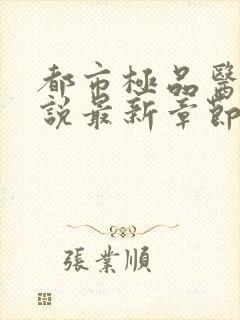 都市極品醫
說最新章節
張業順